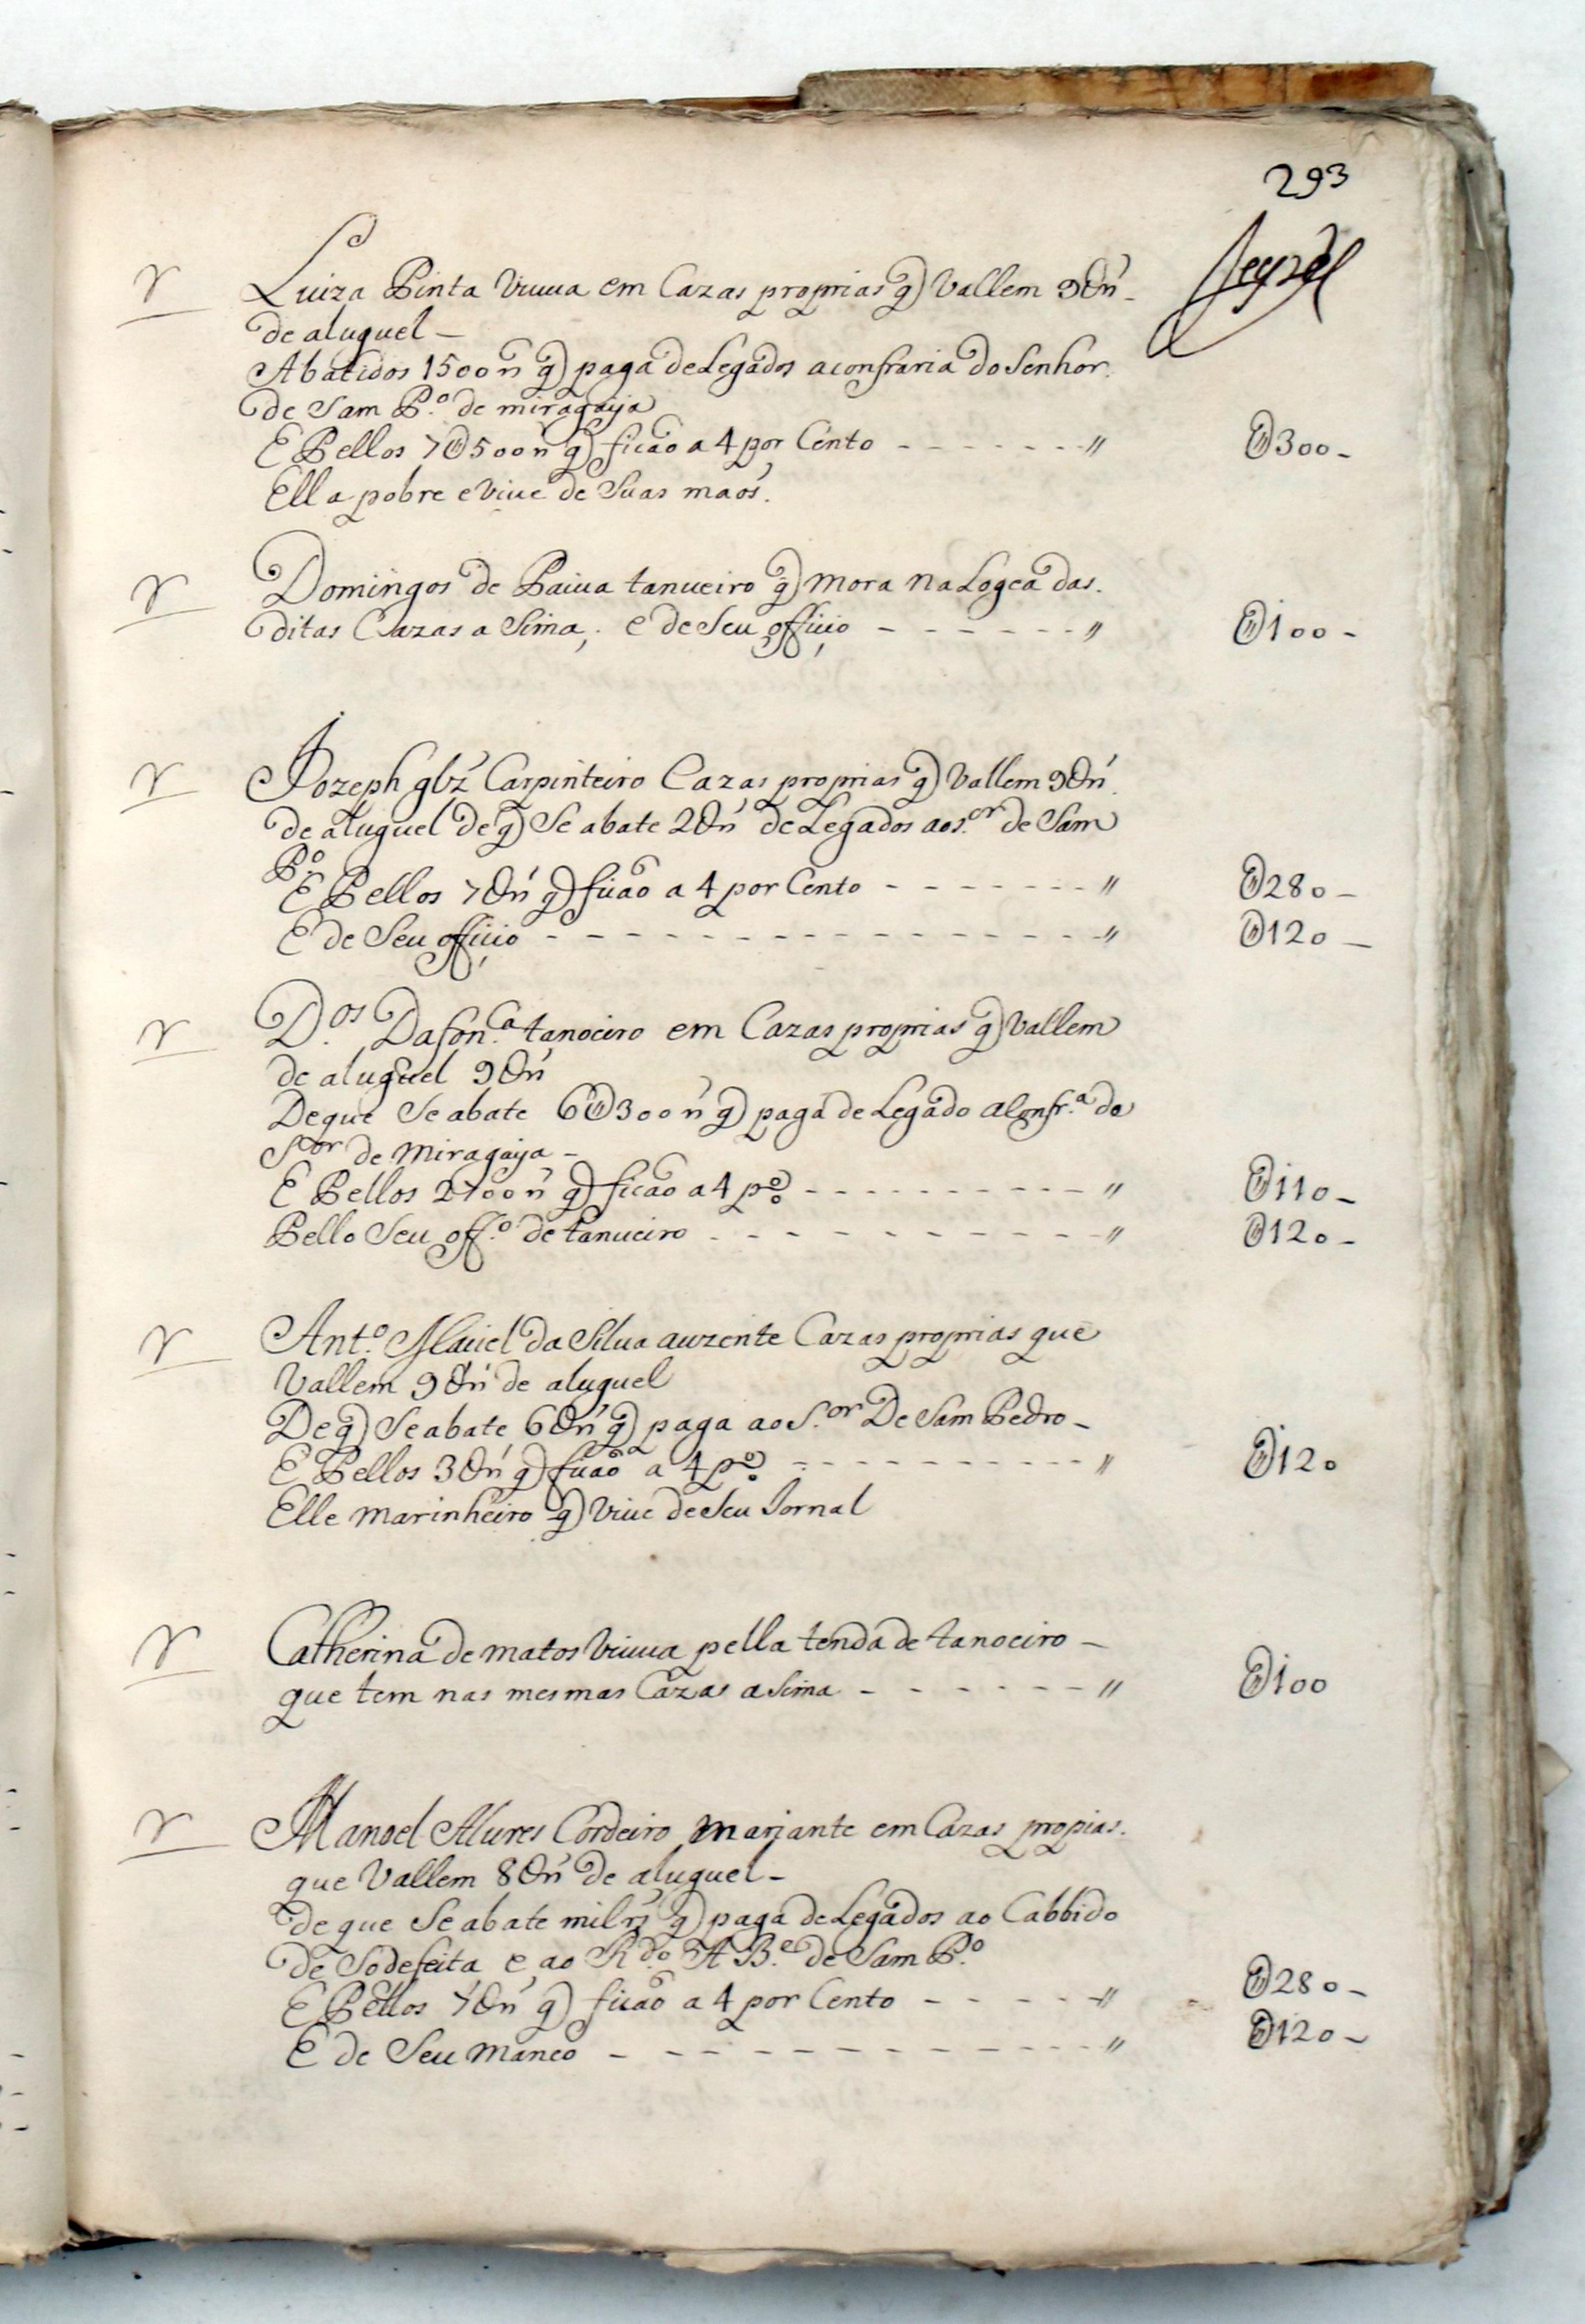 293
Luiza Pinta Viuua em Cazas proprias q̃ Vallem 9U rs̃
de aluguel —
Abatidos 1500 rs̃ q̃ paga de Legados a confraria do Senhor
de Sam P.º de miragaija
E Pellos 7U500 rs̃ q̃ ficão a 4 por Cento - - - - - - - " U300 -
Ella pobre e Viue de Suas maos.
Domingos de Paiua tanueiro q̃ mora na Logea das
ditas Cazas a Sima, e de Seu officio - - - - - - - " U100 -
Jozeph glz̃ Carpinteiro Cazas proprias q̃ Vallem 9U rs̃
de aluguel de q̃ Se abate 2U rs̃ de Legados ao s.or de Sam
P.º
E Pellos 7U rs̃ q̃ ficão a 4 por Cento - - - - - - - " U280 -
E de Seu officio - - - - - - - - - - - - - - - - - - - " U120 -
D.os Dafon.ca tanoeiro em Cazas proprias q̃ Vallem
de aluguel 9U rs̃
De que Se abate 6U300 rs̃ q̃ paga de Legado a Confr.a do
S.or de Miragaija -
E Pellos 2700 rs̃ q̃ ficão a 4 p.º - - - - - - - - - - " U110 -
Pello Seu off.º de tanueiro - - - - - - - - - - - - " U120 -
Ant.º Maciel da Silua auzente Cazas proprias que
Vallem 9U rs̃ de aluguel
De q̃ Se abate 6U rs̃ q̃ paga ao S.or De Sam Pedro -
E Pellos 3U rs̃ q̃ ficão a 4 p.º - - - - - - - - - - " U120
Elle marinheiro q̃ Viue de Seu Jornal
Catherina de matos Viuua pella tenda de tanoeiro -
que tem nas mesmas Cazas a Sima - - - - - - - " U100
Manoel Alures Cordeiro mariante em Cazas propias
que Vallem 8U rs̃ de aluguel -
de que Se abate mil rs̃ q̃ paga de Legados ao Cabbido
de Sodefeita e ao R.do A B.e de Sam P.º
E Pellos 7U rs̃ q̃ ficão a 4 por Cento - - - - - " U280 -
E de Seu maneo - - - - - - - - - - - - - " U120 -